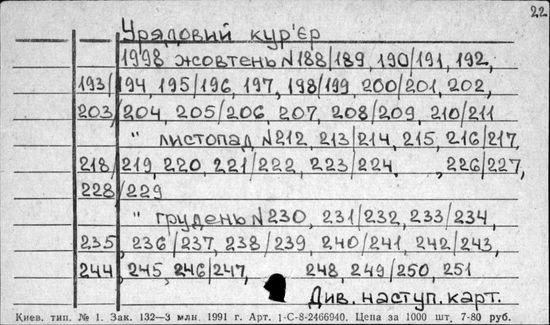 22
Урядовий кур'єр
1998 жовтень N188/189, 190/191, 192,
193/194, 195/196, 197, 198/199, 200/201, 202,
203/204, 205/206, 207, 208/209, 210/211
" листопад N212, 213/214, 215, 216/217,
218/219, 220, 221/222, 223/224, , 226/227,
228/229
" грудень N230, 231/232, 233/234,
235, 236/237, 238/239, 240/241, 242/243,
244, 245, 246/247, 248, 249/250, 251
Див. наступ. карт.
Киев. тип. № 1. Зак. 132—3 млн. 1991 г. Арт. 1-С-8-2466940. Цена за 1000 шт. 7-80 руб.